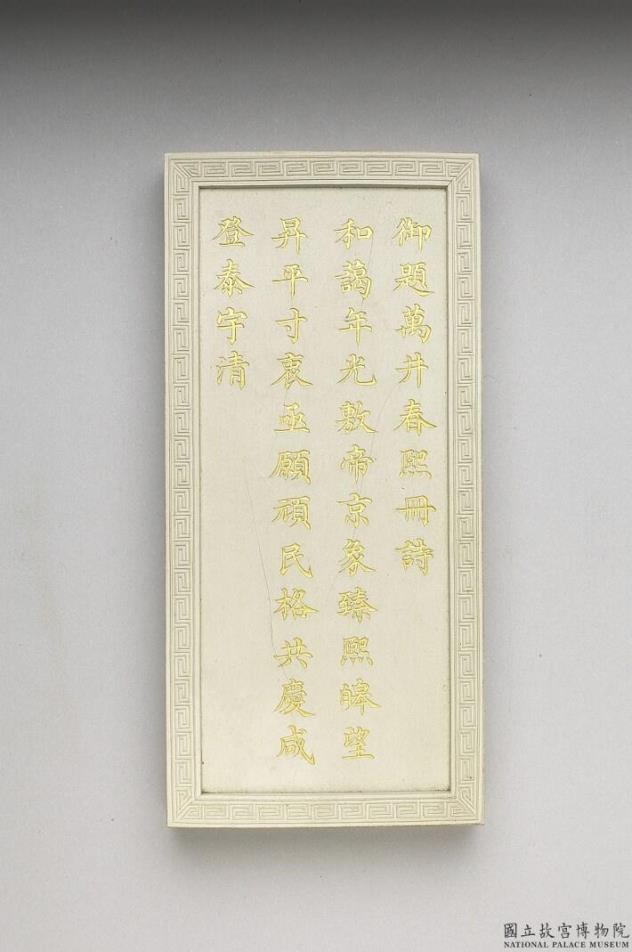 御題萬井春熙冊詩
和藹年光敷帝京象臻熙皞望
昇平寸衷亟願頑民格共慶咸
登泰宇清
國立故宮博物院
NATIONAL PALACE MUSEUM